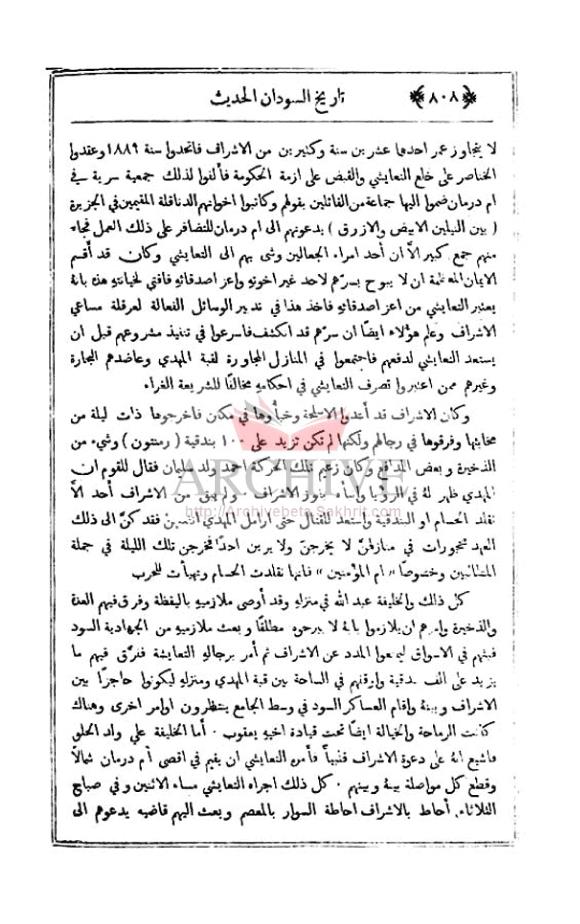 ﴿٨٠٨﴾ تاريخ السودان الحديث
لا يتجاوز عمر احدهما عشرين سنة وكثيرين من الاشراف فاتحدوا سنة ١٨٨٩ وعقدوا
الخناصر على خلع التعايشي والقبض على ازمة الحكومة فألفوا لذلك جمعية سرية في
ام درمان ضموا اليها جماعة من القائلين بقولهم وكاتبوا اخوانهم الدناقلة المقيمين في الجزيرة
( بين النيلين الابيض والازرق ) يدعونهم الى ام درمان للتضافر على ذلك العمل فجاء
منهم جمع كبير الاَّ ان أحد امراء الجعالين وشى بهم الى التعايشي وكان قد أقسم
الايمان المعظمة ان لا يبوح بسرّهم لاحد غير اخوتهِ واعز اصدقائهِ فافتي لخيانتهِ هذه بانهُ
يعتبر التعايشي من اعز اصدقائهِ فاخذ هذا في تدبير الوسائل الفعالة لعرقلة مساعي
الاشراف وعلم هؤلاء ايضًا ان سرّهم قد انكشف فاسرعوا في تنفيذ مشروعهم قبل ان
يستعد التعايشي لدفعهم فاجتمعوا في المنازل المجاورة لقبة المهدي وعاضدهم البحارة
وغيرهم ممن اعتبروا تصرف التعايشي في احكامهِ مخالفًا للشريعة الغراء
وكان الاشراف قد أعدوا الاسلحة وخبأوها في مكمن فاخرجوها ذات ليلة من
مخابئها وفرقوها في رجالهم ولكنها لم تكن تزيد على ١٠٠ بندقية ( رمنتون ) وشيء من
الذخيرة وبعض المدافع وكان زعيم تلك الحركة احمد ولد سليمان فقال للقوم ان
المهدي ظهر لهُ في الرؤيا وأنبأه بفوز الاشراف . ولم يبق من الاشراف أحد الاَّ
تقلد الحسام او البندقية واستعد للقتال حتى ارامل المهدي انفسهنَّ فقد كنَّ الى ذلك
العهد محجورات في منازلهنَّ لا يخرجنَ ولا يرين احدًا فخرجن تلك الليلة في جملة
المطالبين وخصوصًا « ام المؤمنين » فانها تقلدت الحسام وتهيأت للحرب
كل ذلك والخليفة عبد الله في منزلهِ وقد أوصى ملازميهِ باليقظة وفرق فيهم العدة
والذخيرة وامرهم ان يلازموا بابهُ لا يبرحوه مطلقًا وبعث ملازميهِ من الجهادية السود
فبثهم في الاسواق ليمنعوا المدد عن الاشراف ثم أمر برجالهِ التعايشة ففرّق فيهم ما
يزيد على الف بندقية واوقفهم في الساحة بين قبة المهدي ومنزلهِ ليكونوا حاجزًا بين
الاشراف وبينهُ واقام العساكر السود في وسط الجامع ينتظرون اوامر اخرى وهناك
كانت الرماحة والخيالة ايضًا تحت قيادة اخيهِ يعقوب . أما الخليفة علي واد الحلو
فاشيع انهُ على دعوة الاشراف فتنبأ فأمن التعايشي ان يقيم في اقصى أم درمان شمالاً
وقطع كل مواصلة بينهُ وبينهم . كل ذلك اجراه التعايشي مساء الاثنين وفي صباح
الثلاثاء أحاط بالاشراف احاطة السوار بالمعصم وبعث اليهم قاضيه يدعوهم الى
ARCHIVE
http://Archivebeta.Sakhrit.com